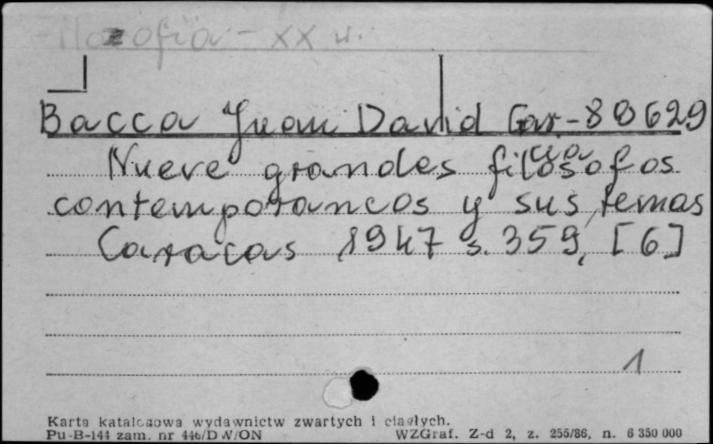 Filozofia - XX w.
Bacca Juan David Gar- 80629
cia
Nueve grandes filosofos
contemporaneos y sus temas
Caracas 1947 s. 359, [6]
1
Karta katalogowa wydawnictw zwartych i ciągłych.
Pu-B-144 zam. nr 446/DW/ON WZGraf. Z-d 2, z. 255/86, n. 6 350 000